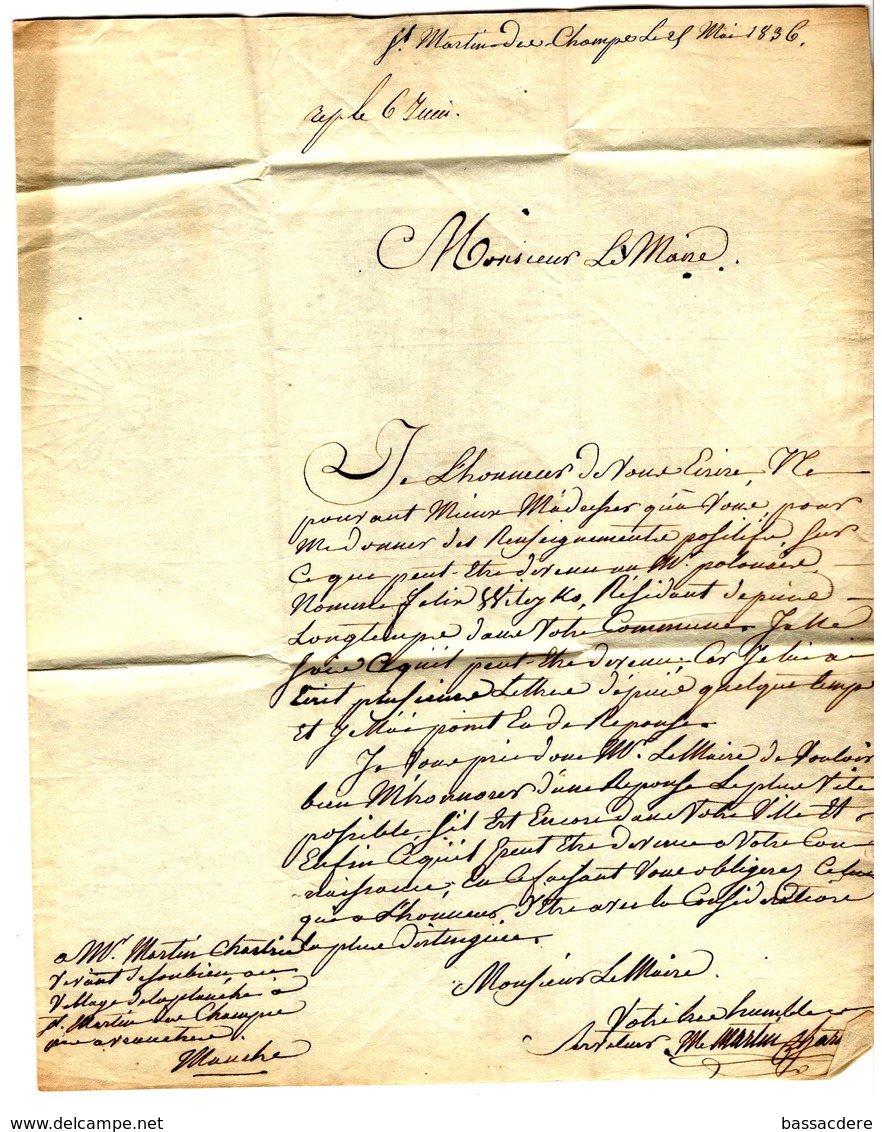 St. Martin des Champs Le 25 Mai 1836.
rep le 6 Juin.
Monsieur Le Maire.
J'ai L'honneur de Vous Ecrire, Ne
pouvant Mieux M'adresser qu'a Vous, pour
Me donner des Renseignements positifs, Sur
Ce que peut-Etre devenu un Mr. polonais
Nommé Felix Witzko, Résidant depuis
Longtemps dans Votre Commune. Je Ne
Sais Ce qu'il peut-Etre devenu. Car Je lui ai
Ecrit plusieurs Lettres dépuis quelque temps
Et Je N'ai point Eu de Réponse.
Je Vous prie donc Mr. Le Maire de Vouloir
bien M'honorer d'une Réponse Le plus Vite
possible. s'il Est Encore dans Votre Ville Et
Enfin Ce qu'il peut Etre devenu a Votre Con
naissance, En Ce faisant Vous obligerez Celui
qui a L'honneur d'Etre avec la Considération
la plus distinguée.
Monsieur Le Maire.
Votre tres humble
Serviteur Martin
a Mr. Martin
Vivant de son bien au
Village de la planche à
St. Martin des Champs
Manche
bassacdere